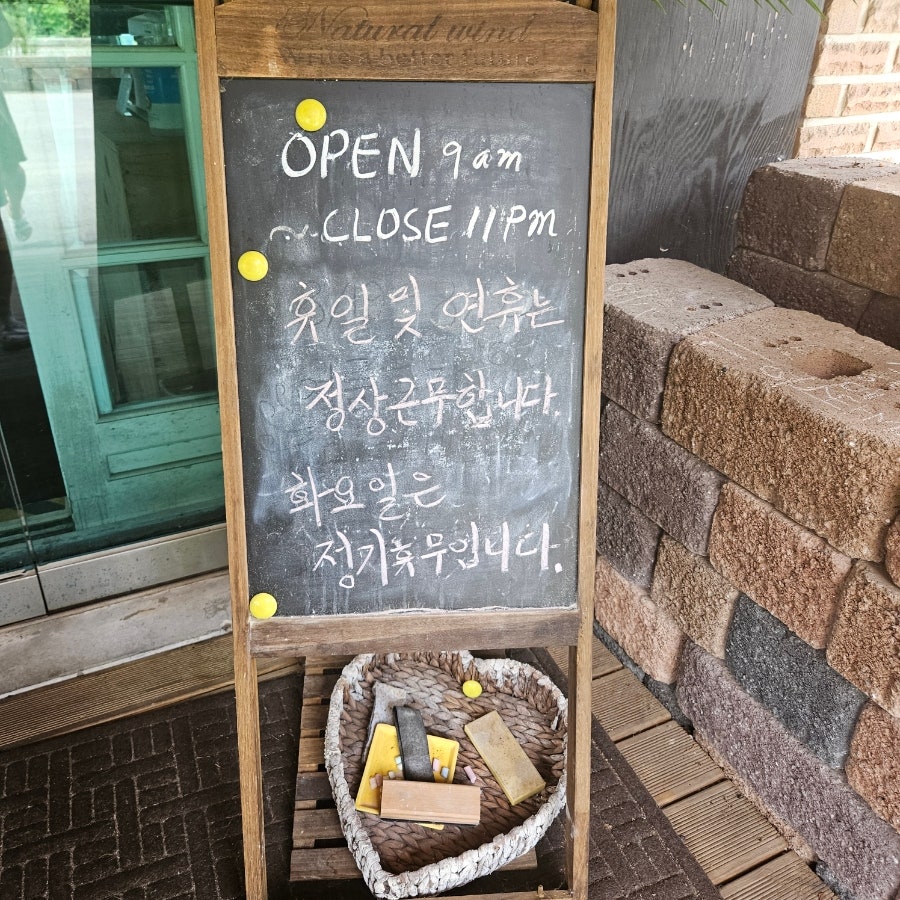 Natural wind
Write a better future
OPEN 9am
~ CLOSE 11PM
휴일 및 연휴는
정상근무합니다.
화요일은
정기휴무입니다.